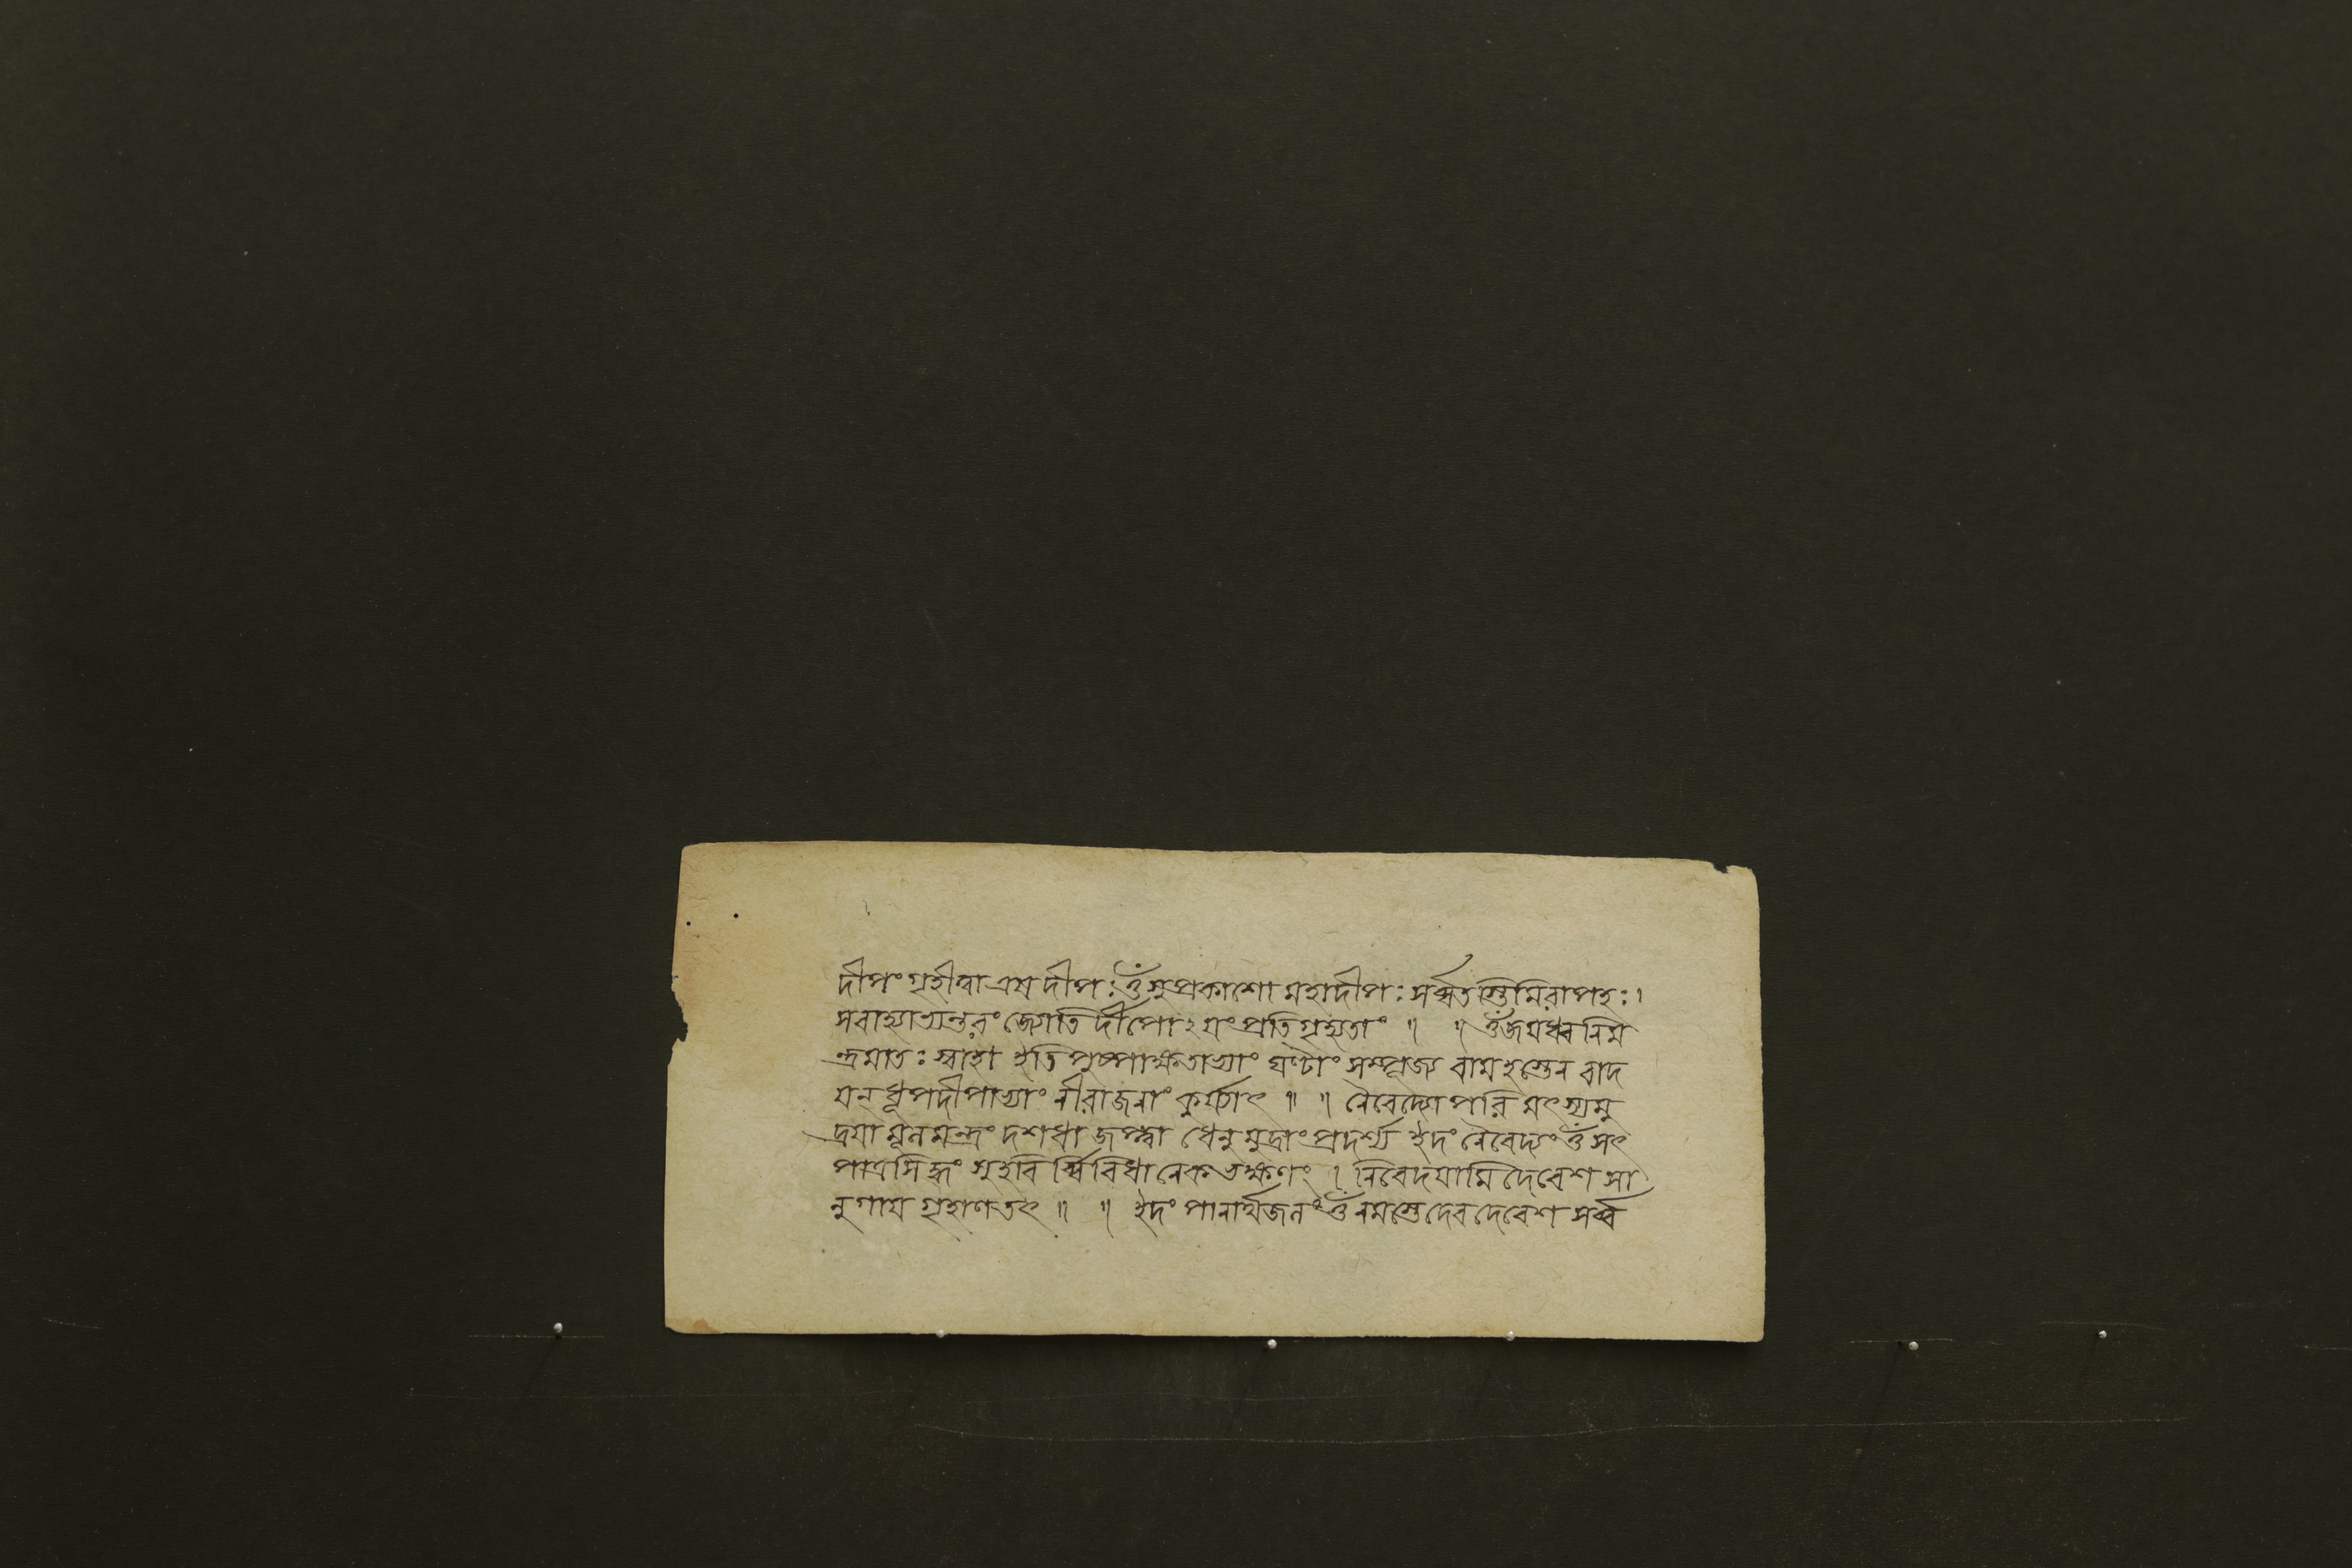 দীপং গৃহীত্বা এষ দীপঃ ওঁ সুপ্রকাশো মহাদীপঃ সর্ব্বতস্তিমিরাপহঃ ।
সবাহ্যাভ্যন্তরং জ্যোতির্দীপোঽয়ং প্রতিগৃহ্যতাং ॥ ॥ ওঁ জয়ধ্বনিম
ন্ত্রমাতঃ স্বাহা ইতি পুষ্পাক্ষতাভ্যাং ঘণ্টাং সম্পূজ্য বামহস্তেন বাদ
য়ন্ ধূপদীপাভ্যাং নীরাজনাং কুর্য্যাৎ ॥ ॥ নৈবেদ্যোপরি মৎস্যমু
দ্রয়া মূলমন্ত্রং দশধা জপ্ত্বা ধেনুমুদ্রাং প্রদর্শ্য ইদং নৈবেদ্যং ওঁ সৎ
পাত্রসিদ্ধং সুহবির্ব্বিবিধানেকভক্ষণং । নিবেদয়ামি দেবেশ সা
নুগায় গৃহাণ তৎ ॥ ॥ ইদং পানার্থজলং ওঁ নমস্তে দেবদেবেশ সর্ব্ব